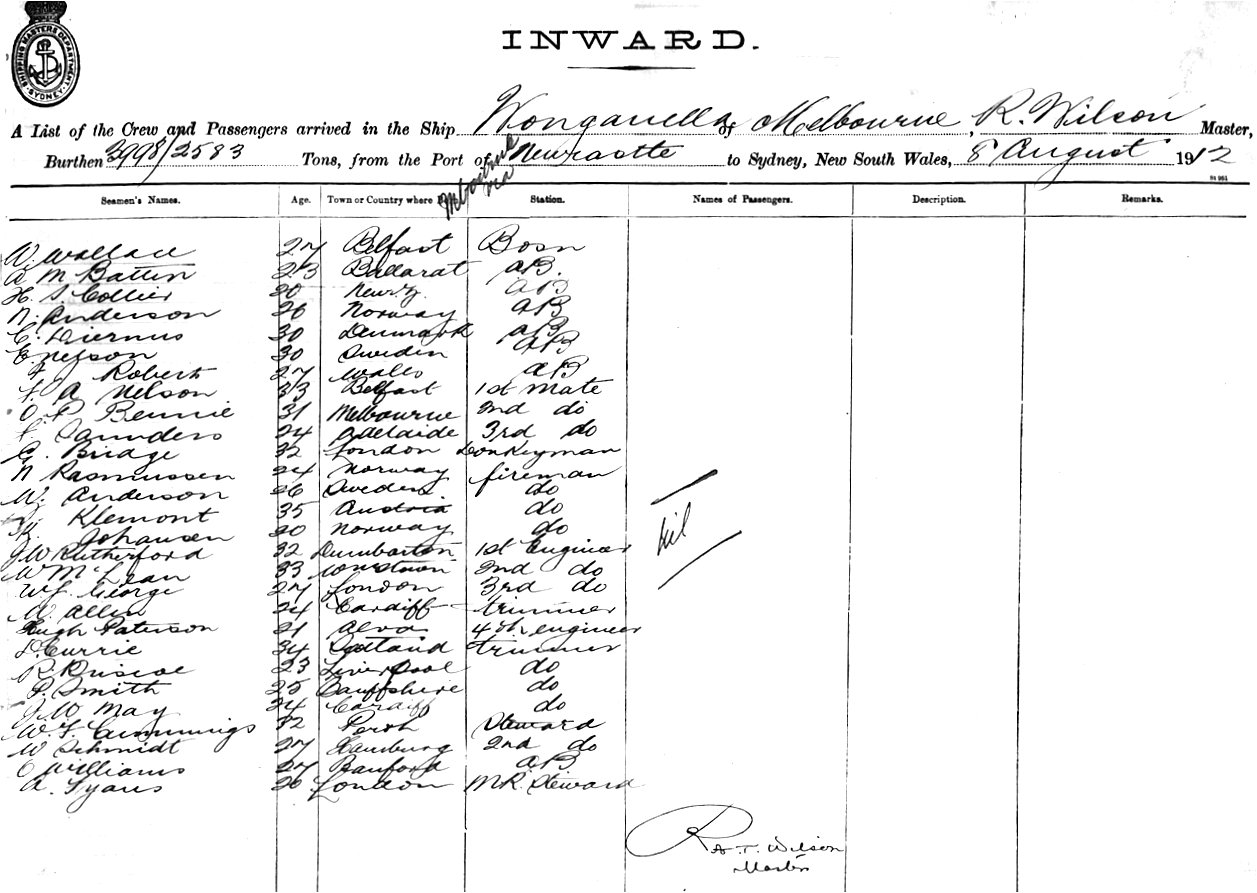 SHIPPING MASTERS DEPARTMENT
SYDNEY
INWARD.
A List of the Crew and Passengers arrived in the Ship Wonganella of Melbourne, R. Wilson Master,
Burthen 3998/2583 Tons, from the Port of Melbourne via Newcastle to Sydney, New South Wales, 8 August 1912
Seamen's Names. Age. Town or Country where Station. Names of Passengers. Description. Remarks.
W. Wallace 27 Belfast Bosn
M Battin 23 Ballarat AB.
H. S. Collier 20 New Z. AB
N. Anderson 26 Norway AB
C. 30 Denmark AB
E. Nelson 30 Sweden AB
Roberts 27 Wales AB
F. A Nelson 33 Belfast 1st Mate
O. P. Bennie 31 Melbourne 2nd do
F. Saunders 24 Adelaide 3rd do
G. Bridge 32 London Donkeyman
N Rasmussen 24 Norway fireman
W. Anderson 26 Sweden do
Klemont 35 Austria do
Johansen 20 Norway do
J W Rutherford 32 Dumbarton 1st Engineer
W McLean 33 2nd do
W J. George 27 London 3rd do
W Allen 24 Cardiff trimmer
Hugh Paterson 21 Alva 4th engineer
D. Currie 34 Scotland trimmer
R. Ruscoe 23 Liverpool do
P. Smith 25 Banffshire do
J. W. May 24 Cardiff do
W. F. Cummings 32 Perth Steward
W Schmidt 27 Hamburg 2nd do
C Williams 27 AB
A. Tyans 26 London M.R. Steward
Nil
R A. T. Wilson
Master